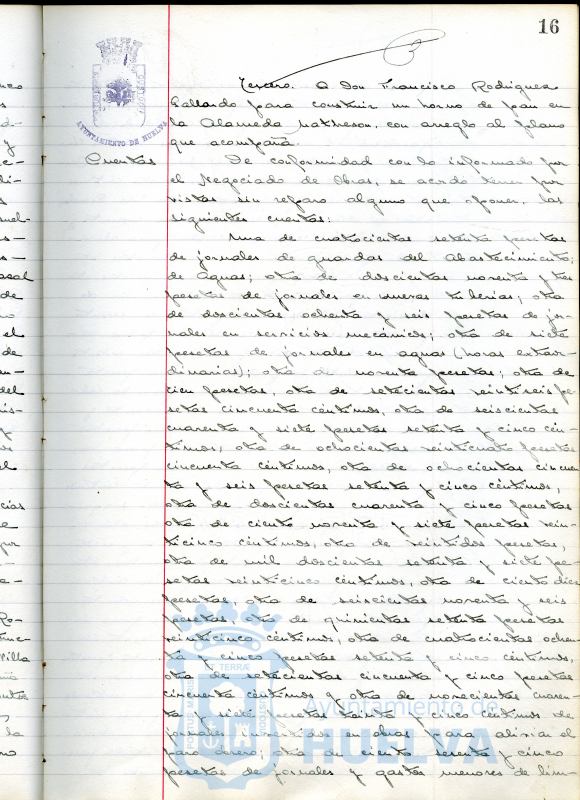 16
AYUNTAMIENTO DE HUELVA
Tercero. A Don Francisco Rodriguez
Gallardo para construir un horno de pan en
la Alameda Matheson, con arreglo al plano
que acompaña.
Cuentas
De conformidad con lo informado por
el Negociado de Obras, se acordó tener por
vistas sin reparo alguno que oponer, las
siguientes cuentas:
Una de cuatrocientas setenta pesetas
de jornales de guardas del Abastecimiento
de Aguas; otra de doscientas noventa y tres
pesetas de jornales en nuevas tuberias; otra
de doscientas ochenta y seis pesetas de jor-
nales en servicios mecánicos; otra de siete
pesetas de jornales en aguas (horas extraor-
dinarias); otra de noventa pesetas; otra de
cien pesetas, otra de setecientas veintiseis pe-
setas cincuenta céntimos, otra de seiscientas
cuarenta y siete pesetas setenta y cinco cén-
timos, otra de ochocientas veinticuatro pesetas
cincuenta céntimos, otra de ochocientas cincuen-
ta y seis pesetas setenta y cinco céntimos,
otra de doscientas cuarenta y cinco pesetas
otra de ciento noventa y siete pesetas vein-
ticinco céntimos, otra de veintidos pesetas,
otra de mil doscientas setenta y siete pe-
setas veinticinco céntimos, otra de ciento diez
pesetas, otra de seiscientas noventa y seis
pesetas, otra de quinientas setenta pesetas
veinticinco céntimos, otra de cuatrocientas ochen-
ta y cinco pesetas setenta y cinco céntimos,
otra de setecientas cincuenta y cinco pesetas
cincuenta céntimos y otra de novecientas cuaren-
ta y siete pesetas treinta y cinco céntimos de
jornales invertidos en obras para aliviar el
paro obrero; otra de ciento sesenta y cinco
pesetas de jornales y gastos menores de lim-
Ayuntamiento de
HUELVA